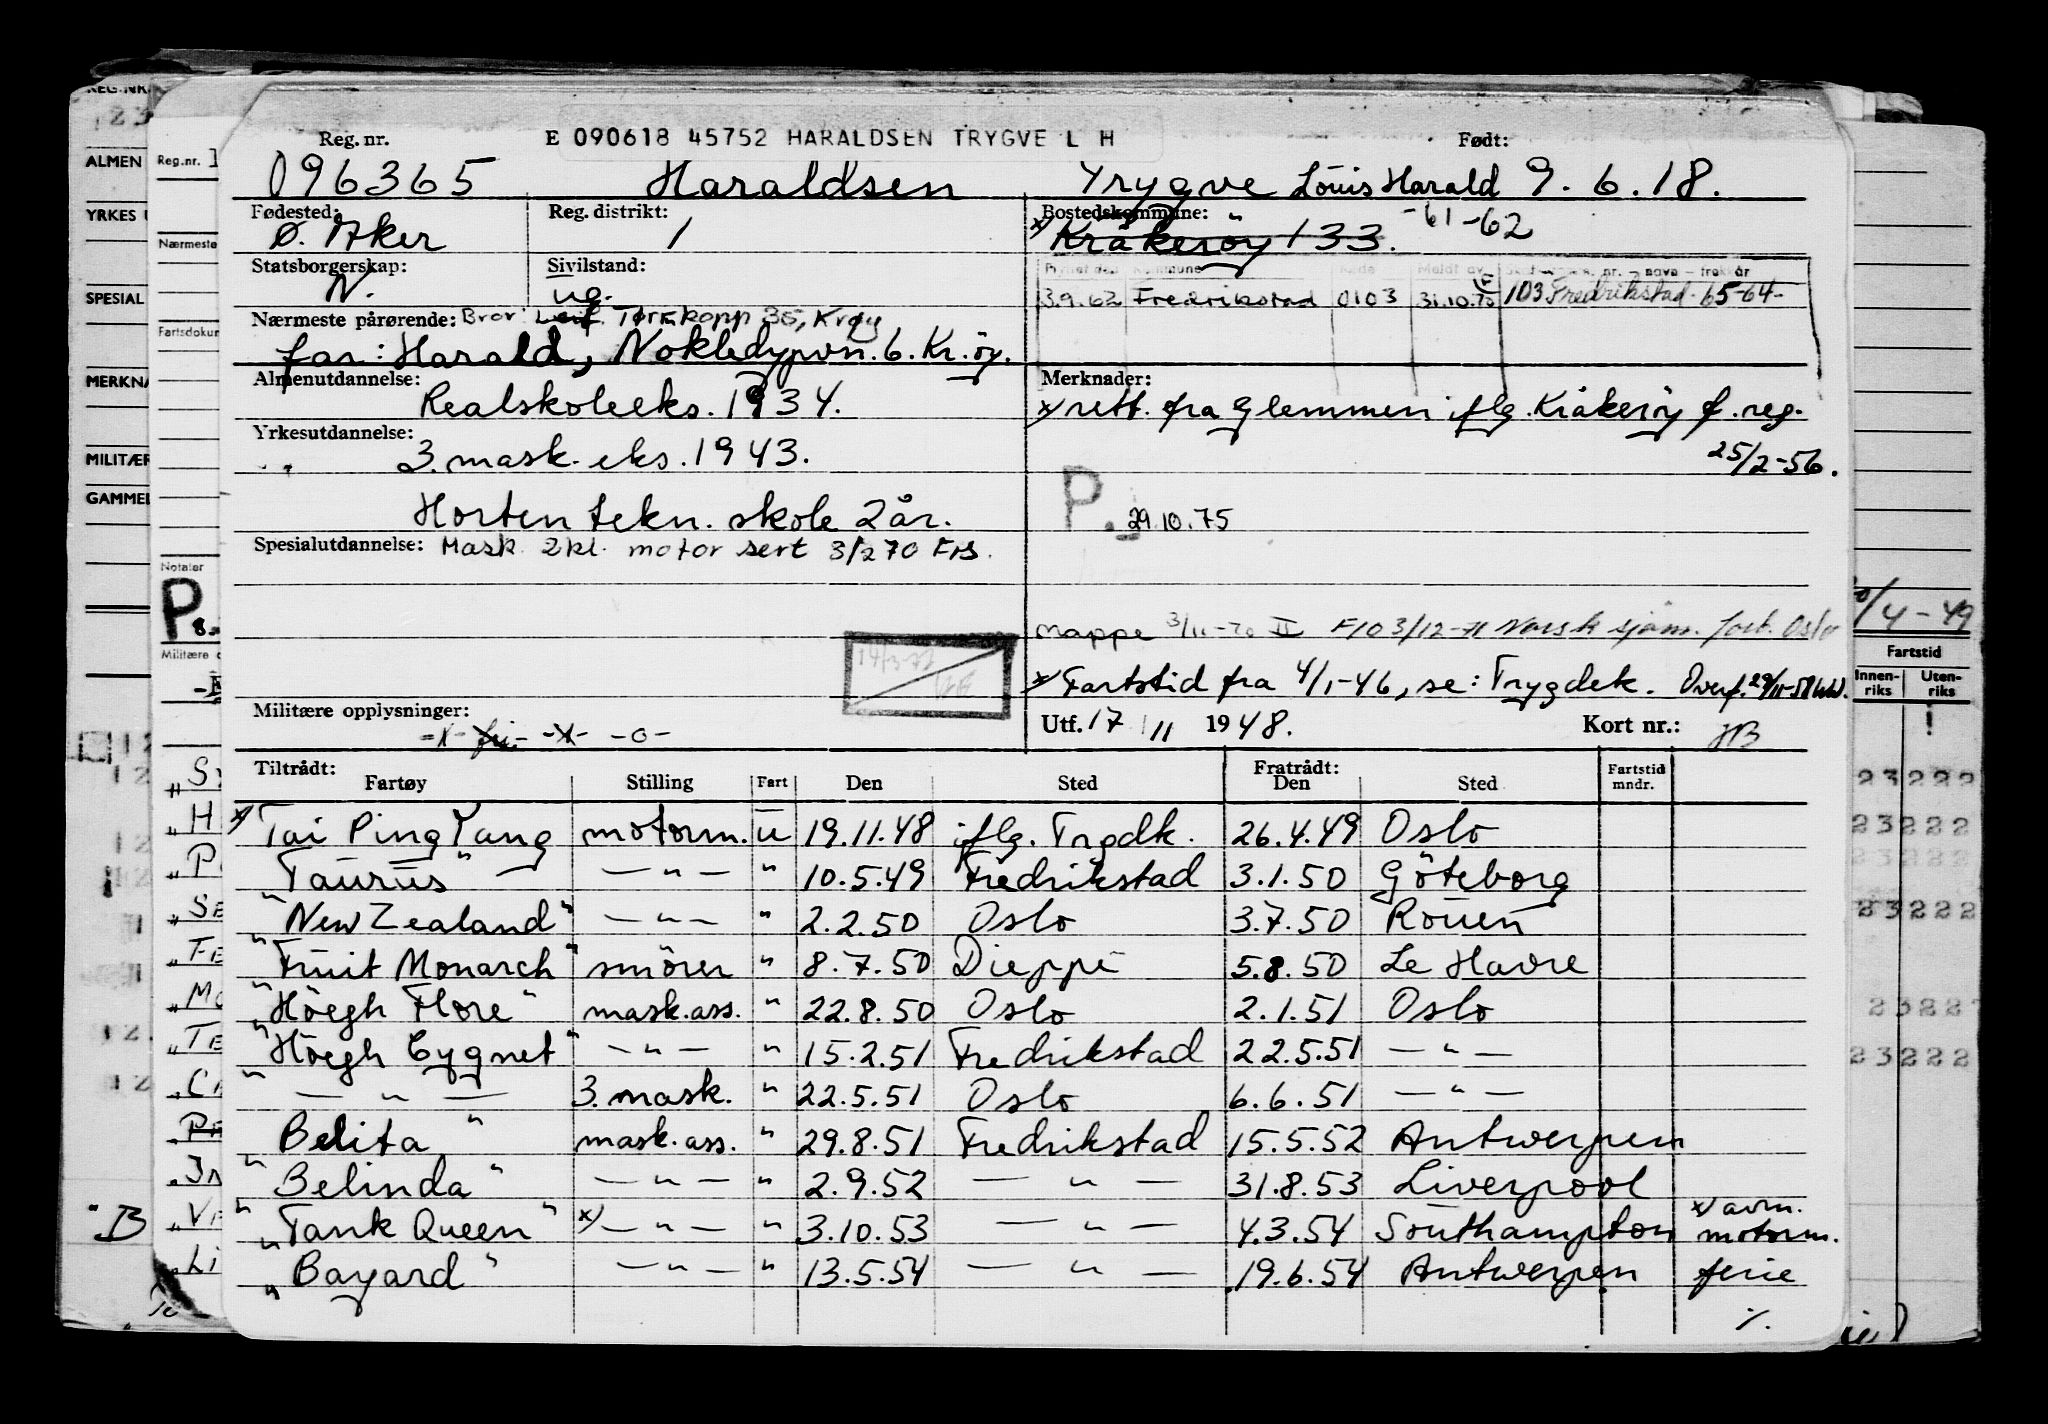 Reg. nr. E 090618 45752 HARALDSEN TRYGVE L H Født:
096365 Haraldsen Trygve Louis Harald 9.6.18.
Fødested: Reg. distrikt: Bostedskommune: -61-62
Ø. Aker 1 x Kråkerøy 133.
Statsborgerskap: Sivilstand:
N. ug. 3.9.62 Fredrikstad 0103 31.10.70 103 Fredrikstad-65-64-
Nærmeste pårørende: Bror: Leif. Tornkopp 35, Krøy
far: Harald, Nokledypvn. 6. Kr.öy.
Almenutdannelse: Merknader:
Realskoleeks. 1934. x rett. fra Glemmen iflg. Kråkeröy f.reg.
Yrkesutdannelse: 25/2-56.
3. mask. eks. 1943.
Horten tekn. skole 2 år. P. 29.10.75
Spesialutdannelse: Mask. 2kl. motor sert 3/2 70 Frs.
mappe 3/11-70 II F103/12-71 Norsk sjøm. forb. Oslo
x Fartstid fra 4/1-46, se: Trygdek. Overf. 29/11-58
Militære opplysninger: -x- fri- -x- -o- Utf. 17/11 1948. Kort nr.: HB
Tiltrådt: Fratrådt: Fartstid
Fartøy Stilling Fart Den Sted Den Sted mndr.
x Tai Ping Yang motorm. u 19.11.48 iflg. Trgdk. 26.4.49 Oslo
"Taurus" — " — " 10.5.49 Fredrikstad 3.1.50 Göteborg
"New Zealand" — " — " 2.2.50 Oslo 3.7.50 Rouen
"Fruit Monarch" smörer " 8.7.50 Dieppe 5.8.50 Le Havre
"Höegh Flore" mask.ass. " 22.8.50 Oslo 2.1.51 Oslo
"Höegh Cygnet" — " — " 15.2.51 Fredrikstad 22.5.51 — " —
— " — 3. mask. " 22.5.51 Oslo 6.6.51 — " —
"Belita" mask.ass. " 29.8.51 Fredrikstad 15.5.52 Antwerpen
"Belinda" — " — " 2.9.52 — " — 31.8.53 Liverpool
"Tank Queen" x) — " — " 3.10.53 — " — 4.3.54 Southampton x avm. motorm.
"Bayard" — " — " 13.5.54 — " — 19.6.54 Antwerpen ferie
%.
REG.NR.
ALMEN
YRKES
SPESIAL
MERKNA
MILITÆR
GAMMEL
Reg.nr.
Nærmeste
Fartsdokum
Notater
P.
Militære
"B
/4-49
Fartstid
Innenriks Utenriks
23222
23222
23222
23222
2322
23222